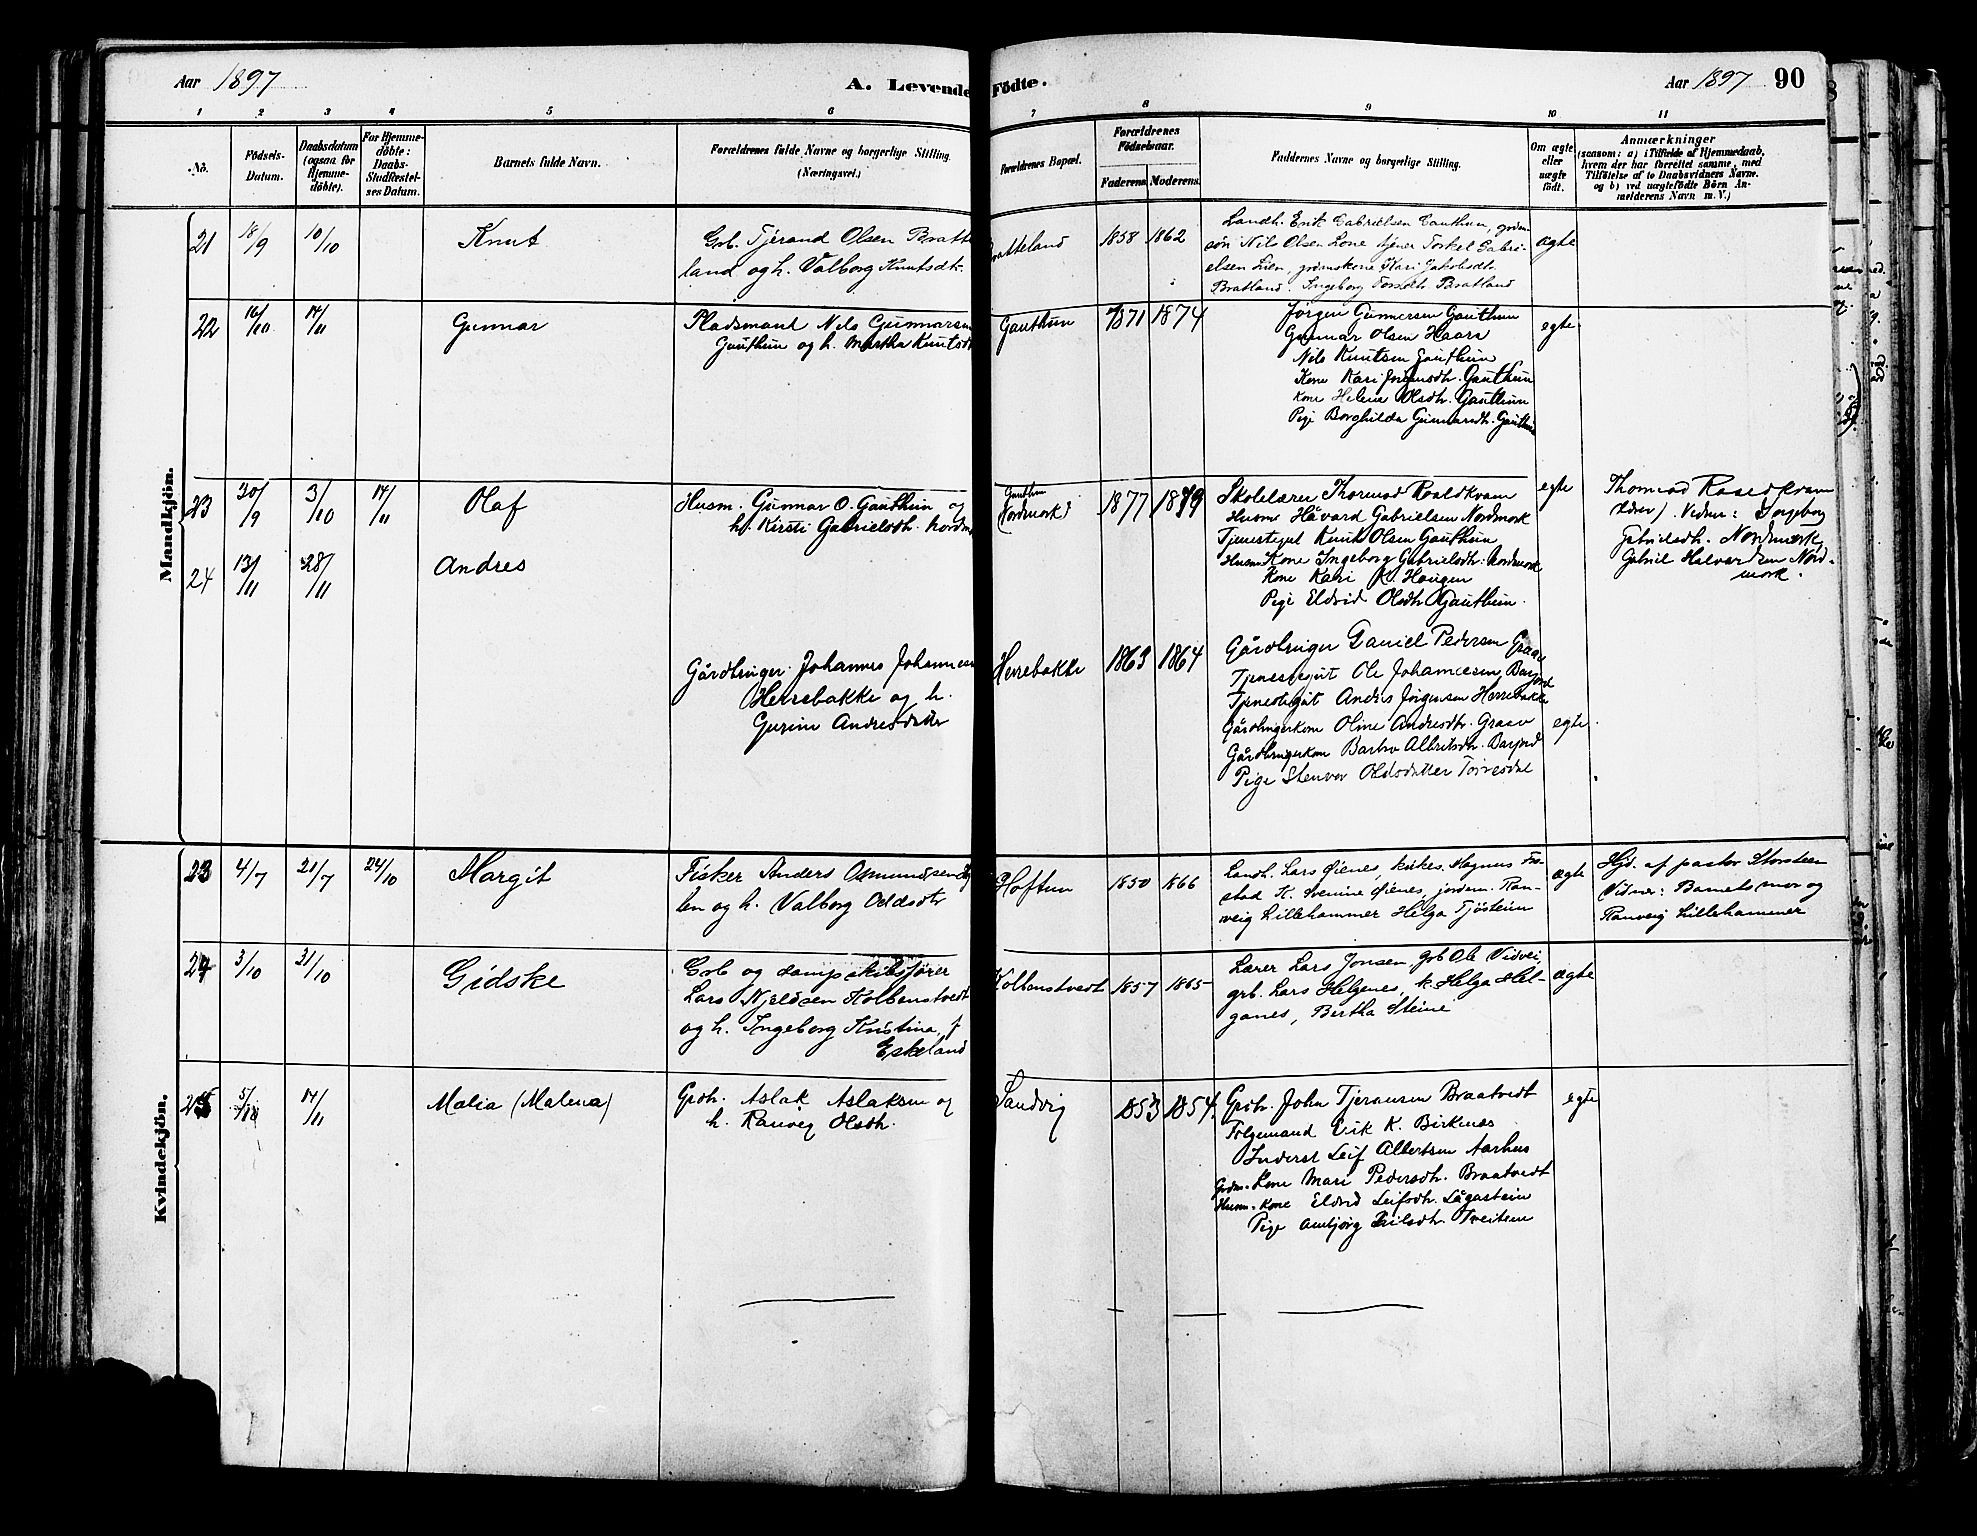 Aar 1897
A. Levende Födte.
Aar 1897 90
1 2 3 4 5 6 7 8 9 10 11
No.
Födsels-Datum.
Daabsdatum (ogsaa for Hjemme-döbte).
For Hjemme-döbte: Daabs-Stadfæstel-ses Datum.
Barnets fulde Navn.
Forældrenes fulde Navne og borgerlige Stilling. (Næringsvei.)
Forældrenes Bopæl.
Forældrenes Födselsaar.
Faderens Moderens
Faddernes Navne og borgerlige Stilling.
Om ægte eller uægte födt.
Anmærkninger
(saasom: a) i Tilfælde af Hjemmedaab,
hvem der har forrettet samme, med
Tilföielse af to Daabsvidners Navne.
og b) ved uægtefödte Börn An-
melderens Navn m. V.)
Mandkjön.
21 18/9 10/10 Knut
Grb. Tjerand Olsen Bratte
land og h. Valborg Knutsdt.
Bratteland 1858 1862
Landh. Erik Gabrielsen Gauthun, grdm
søn Nils Olsen Lone tjener Torkel Gabri-
elsen Lien, grdmskone Kari Jakobsdt.
Bratland. Ingeborg Torsdt. Bratland
ægte
22 16/10 14/11 Gunnar
Pladsmand Nils Gunnarsen
Gauthun og h. Martha Knutsdt
Gauthun 1871 1874
Jørgen Gunnersen Gauthun
Gunnar Olsen Haara
Nils Knutsen Gauthun
Kone Kari Jørgensdtr. Gauthun
Kone Helene Olsdtr. Gauthun
Pige Borghilda Gunnarsdt. Gauthun
egte
23 30/9 3/10 14/11 Olaf
Husm. Gunnar O. Gauthun og
h. Kirsti Gabrielsdtr. Nordm
Gauthun
(Nordmork) 1877 1879
Skolelærer Thormod Roaldkvam
Husm Håvard Gabrielsen Nordmork
Tjenestegut Knut Olsen Gauthun
Husm Kone Ingeborg Gabrielsdtr. Nordmork
Kone Kari K. Haugen
Pige Eldrid Olsdtr Gauthun.
egte
Vidner: Ingeborg
Gabrielsdtr. Nordmork
Gabriel Halvardsen Nord-
mork.
24 13/11 28/11 Andres
Gårdbruger Johannes Johannesen
Herrebakke og h.
Gurine Andresdatter
Herrebakke 1863 1864
Gårdbruger Daniel Pedersen Graav
Tjenestegut Ole Johannesen Barjord
Tjenestegut Andres Jørgensen Herrebakke
Gårdbrugerkone Oline Andresdtr. Graav
Gårdbrugerkone Barbro Albertsdtr. Barjord
Pige Stenvor Oddsdatter Torresdal
egte
Kvindekjön.
23 4/7 21/7 24/10 Margit
Fisker Anders Osmundsen
len og h. Valborg Oddsdtr
Hoftun 1850 1866
Landh. Lars Øienes, kirkes. Magnus Fro-
stad K. Svenine Øienes, jordem. Ran-
veig Lillehammer Helga Tjösteim
ægte
Hjd. af pastor Storsteen
Vidner: Barnets mor og
Ranveig Lillehammer
24 3/10 31/10 Gidske
Grb og dampskibsfører
Lars Njeldsen Kolbenstvedt
og h. Ingeborg Kristina, f
Eskeland
Kolbenstvedt 1857 1865
Lærer Lars Jonsen, grb Ole Vidvei,
grb. Lars Helgenes, k. Helga Hel-
ganes, Bertha Steine
ægte
25 5/10 14/11 Malia (Malena)
Grdb. Aslak Aslaksen og
h. Ranveig Olsdtr.
Sandvig 1853 1854
Grdbr. John Tjeransen Braatvedt
Følgemand Erik K. Birkenes
Inderst Leif Albertsen Aarhus
Grdm-Kone Mari Pedersdtr. Braatvedt
Husm-Kone Eldrid Leifsdtr. Lågastein
Pige Ambjørg Eriksdtr Tveitem
egte